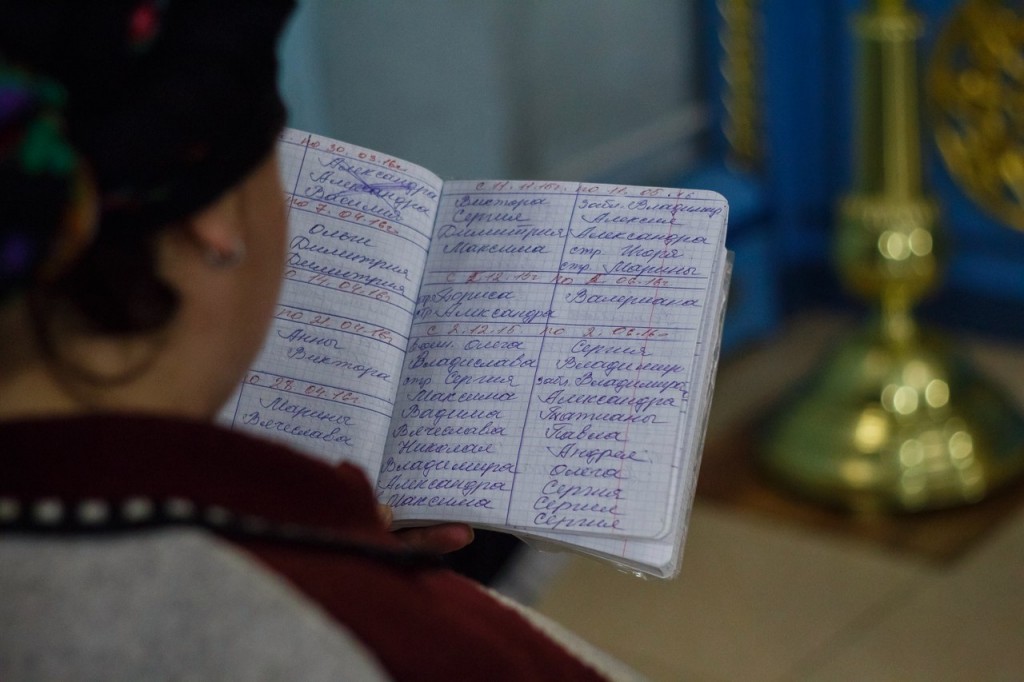 по 30. 03.16г.
Александра
Александра
Василия
по 7. 04.16г.
Ольги
Димитрия
Димитрия
14. 04.16г.
по 21. 04.16г.
Анны
Виктора
по 28.04.16г.
Марины
Вячеслава
с 11.11.15г.
Виктора
Сергия
Димитрия
Максима
с 2.12.15г.
Бориса
стр. Александра
с 2.12.15
воин. Олега
Владислава
стр. Сергия
Максима
Вадима
Вячеслава
Николая
Владимира
Александра
Максима
по 11. 05.16
забл. Владимир
Алексия
Александра
стр. Игоря
стр. Марины
по 2. 06.16г.
Валериана
по 2. 06.16г.
Сергия
Владимир
забл. Владимира
Александра
Татианы
Павла
Андрея
Олега
Сергия
Сергия
Сергия